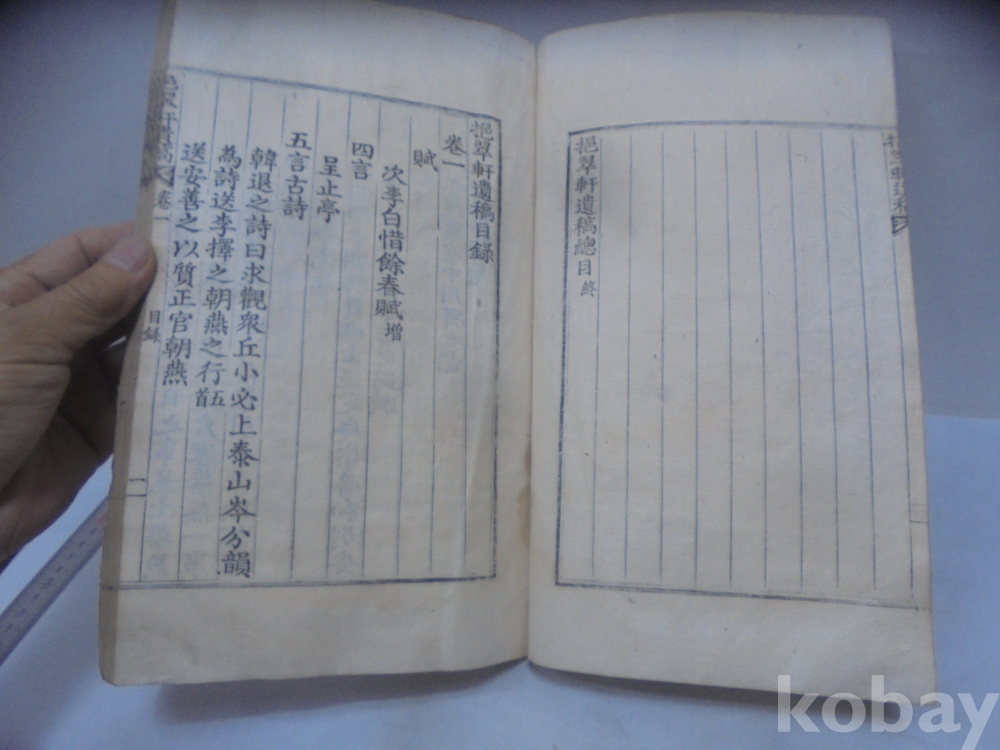 挹翠軒遺稿總目 終
挹翠軒遺稿目錄
卷一
賦
次李白惜餘春賦 增
四言
呈止亭
五言古詩
韓退之詩曰求觀衆丘小必上泰山岑分韻
為詩送李擇之朝燕之行 五首
送安善之以質正官朝燕
卷一
目錄
一
kobay